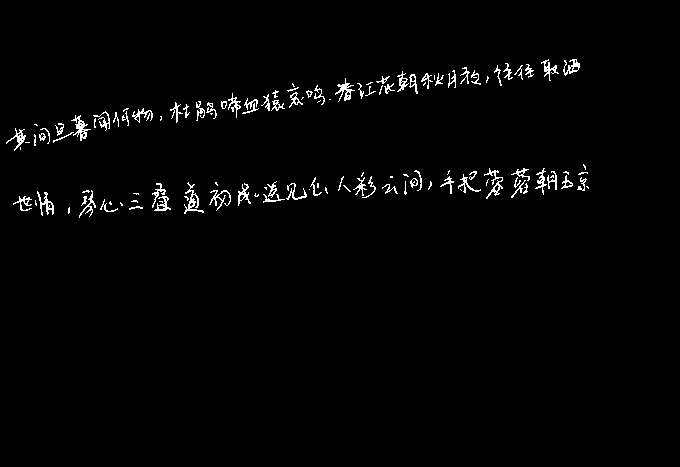 其间旦暮闻何物，杜鹃啼血猿哀鸣.春江花朝秋月夜，往往取酒
世情，琴心三叠道初成。遥见仙人彩云间，手把芙蓉朝玉京